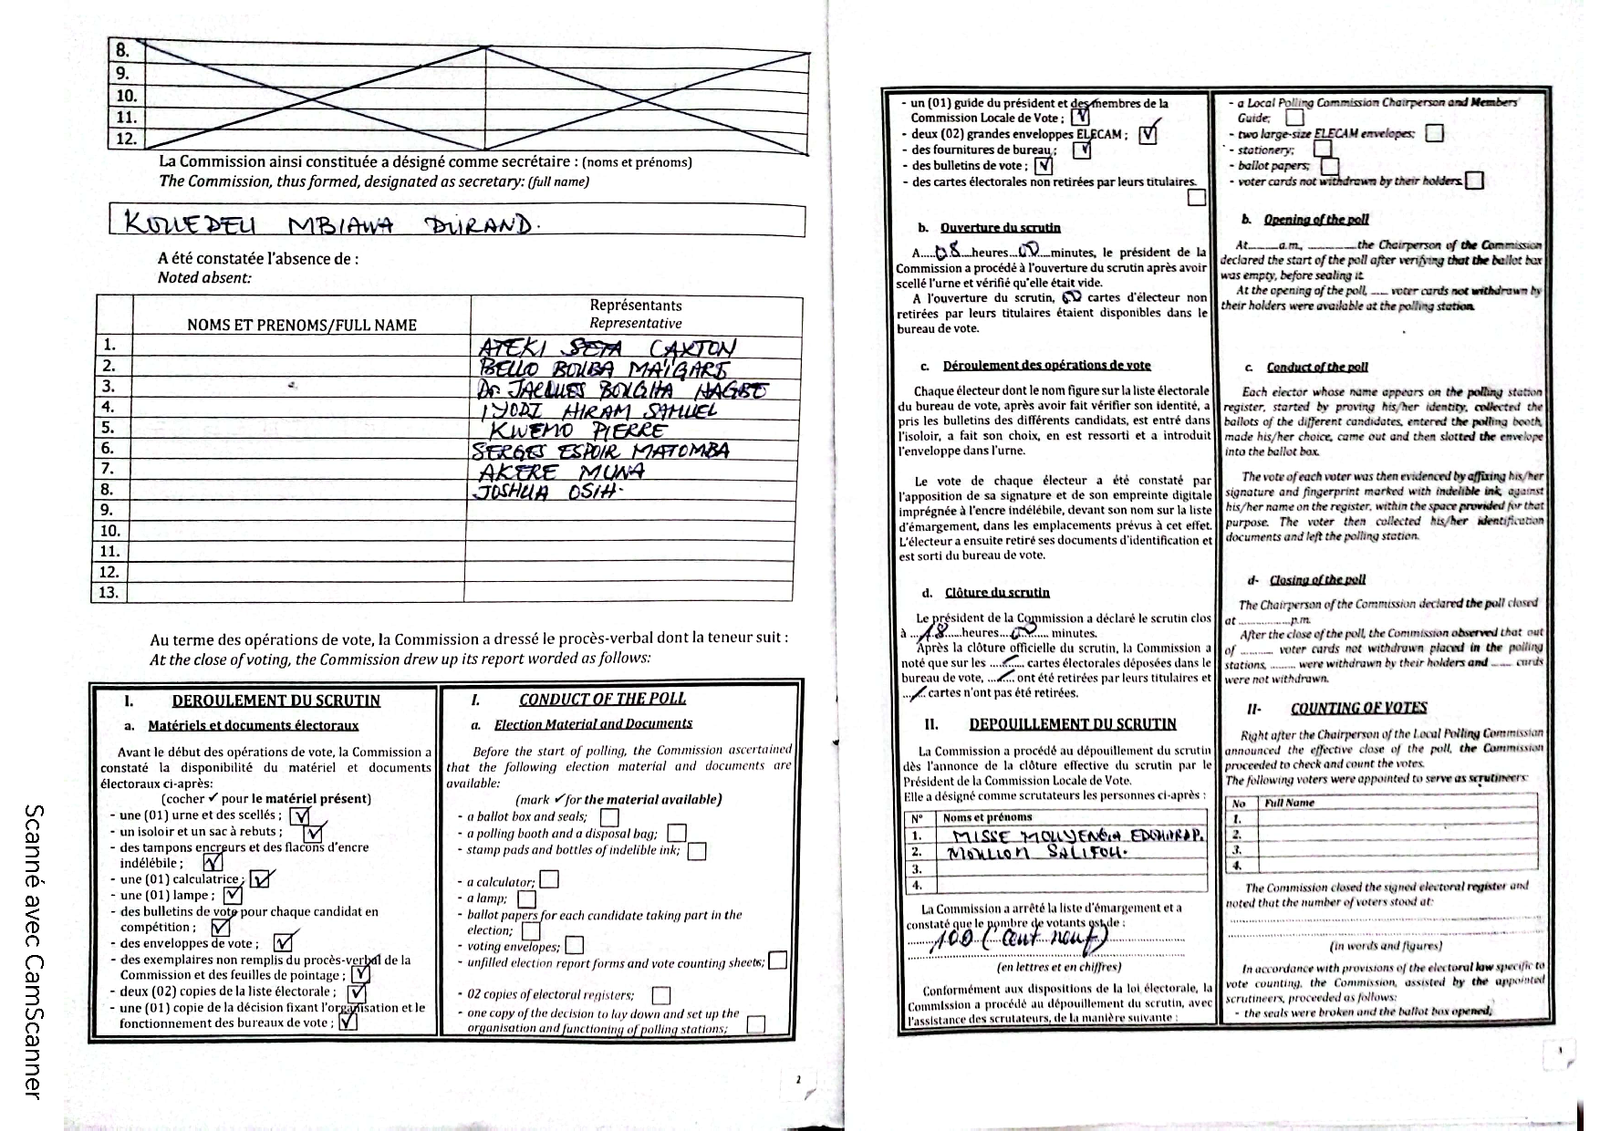 8.
9.
10.
11.
12.
La Commission ainsi constituée a désigné comme secrétaire : (noms et prénoms)
The Commission, thus formed, designated as secretary: (full name)
MBIAWA DURAND.
A été constatée l'absence de :
Noted absent:
NOMS ET PRENOMS/FULL NAME
Représentants
Representative
1. ATEKI SETA CAXTON
2. BELLO BOUBA MAÏGARI
3. Dr JACQUES BOUGHA HAGBE
4. IYODI HIRAM SAMUEL
5. KWEMO PIERRE
6. SERGES ESPOIR MATOMBA
7. AKERE MUNA
8. JOSHUA OSIH.
9.
10.
11.
12.
13.
Au terme des opérations de vote, la Commission a dressé le procès-verbal dont la teneur suit :
At the close of voting, the Commission drew up its report worded as follows:
I. DEROULEMENT DU SCRUTIN
a. Matériels et documents électoraux
Avant le début des opérations de vote, la Commission a
constaté la disponibilité du matériel et documents
électoraux ci-après:
(cocher ✓ pour le matériel présent)
- une (01) urne et des scellés ;
- un isoloir et un sac à rebuts ;
- des tampons encreurs et des flacons d'encre
indélébile ;
- une (01) calculatrice ;
- une (01) lampe ;
- des bulletins de vote pour chaque candidat en
compétition ;
- des enveloppes de vote ;
- des exemplaires non remplis du procès-verbal de la
Commission et des feuilles de pointage ;
- deux (02) copies de la liste électorale ;
- une (01) copie de la décision fixant l'organisation et le
fonctionnement des bureaux de vote ;
I. CONDUCT OF THE POLL
a. Election Material and Documents
Before the start of polling, the Commission ascertained
that the following election material and documents are
available:
(mark ✓ for the material available)
- a ballot box and seals;
- a polling booth and a disposal bag;
- stamp pads and bottles of indelible ink;
- a calculator;
- a lamp;
- ballot papers for each candidate taking part in the
election;
- voting envelopes;
- unfilled election report forms and vote counting sheets;
- 02 copies of electoral registers;
- one copy of the decision to lay down and set up the
organisation and functioning of polling stations;
2
Scanné avec CamScanner
- un (01) guide du président et des membres de la
Commission Locale de Vote ;
- deux (02) grandes enveloppes ELECAM ;
- des fournitures de bureau ;
- des bulletins de vote ;
- des cartes électorales non retirées par leurs titulaires.
b. Ouverture du scrutin
A.....08...heures..00...minutes, le président de la
Commission a procédé à l'ouverture du scrutin après avoir
scellé l'urne et vérifié qu'elle était vide.
A l'ouverture du scrutin, 00 cartes d'électeur non
retirées par leurs titulaires étaient disponibles dans le
bureau de vote.
c. Déroulement des opérations de vote
Chaque électeur dont le nom figure sur la liste électorale
du bureau de vote, après avoir fait vérifier son identité, a
pris les bulletins des différents candidats, est entré dans
l'isoloir, a fait son choix, en est ressorti et a introduit
l'enveloppe dans l'urne.
Le vote de chaque électeur a été constaté par
l'apposition de sa signature et de son empreinte digitale
imprégnée à l'encre indélébile, devant son nom sur la liste
d'émargement, dans les emplacements prévus à cet effet.
L'électeur a ensuite retiré ses documents d'identification et
est sorti du bureau de vote.
d. Clôture du scrutin
Le président de la Commission a déclaré le scrutin clos
à ...18.....heures...00..... minutes.
Après la clôture officielle du scrutin, la Commission a
noté que sur les ....../..... cartes électorales déposées dans le
bureau de vote, .../.... ont été retirées par leurs titulaires et
.../ cartes n'ont pas été retirées.
II. DEPOUILLEMENT DU SCRUTIN
La Commission a procédé au dépouillement du scrutin
dès l'annonce de la clôture effective du scrutin par le
Président de la Commission Locale de Vote.
Elle a désigné comme scrutateurs les personnes ci-après :
N° Noms et prénoms
1. MISSE
2. SALIFOU.
3.
4.
La Commission a arrêté la liste d'émargement et a
constaté que le nombre de votants est de :
109 (Cent neuf)
(en lettres et en chiffres)
Conformément aux dispositions de la loi électorale, la
Commission a procédé au dépouillement du scrutin, avec
l'assistance des scrutateurs, de la manière suivante :
- a Local Polling Commission Chairperson and Members'
Guide;
- two large-size ELECAM envelopes;
- stationery;
- ballot papers;
- voter cards not withdrawn by their holders.
b. Opening of the poll
At........a.m., ............the Chairperson of the Commission
declared the start of the poll after verifying that the ballot box
was empty, before sealing it.
At the opening of the poll, ..... voter cards not withdrawn by
their holders were available at the polling station.
c. Conduct of the poll
Each elector whose name appears on the polling station
register, started by proving his/her identity, collected the
ballots of the different candidates, entered the polling booth,
made his/her choice, came out and then slotted the envelope
into the ballot box.
The vote of each voter was then evidenced by affixing his/her
signature and fingerprint marked with indelible ink, against
his/her name on the register, within the space provided for that
purpose. The voter then collected his/her identification
documents and left the polling station.
d- Closing of the poll
The Chairperson of the Commission declared the poll closed
at ................p.m.
After the close of the poll, the Commission observed that out
of .......... voter cards not withdrawn placed in the polling
stations, ........ were withdrawn by their holders and ...... cards
were not withdrawn.
II- COUNTING OF VOTES
Right after the Chairperson of the Local Polling Commission
announced the effective close of the poll, the Commission
proceeded to check and count the votes.
The following voters were appointed to serve as scrutineers:
No Full Name
1.
2.
3.
4.
The Commission closed the signed electoral register and
noted that the number of voters stood at:
(in words and figures)
In accordance with provisions of the electoral law specific to
vote counting, the Commission, assisted by the appointed
scrutineers, proceeded as follows:
- the seals were broken and the ballot box opened;